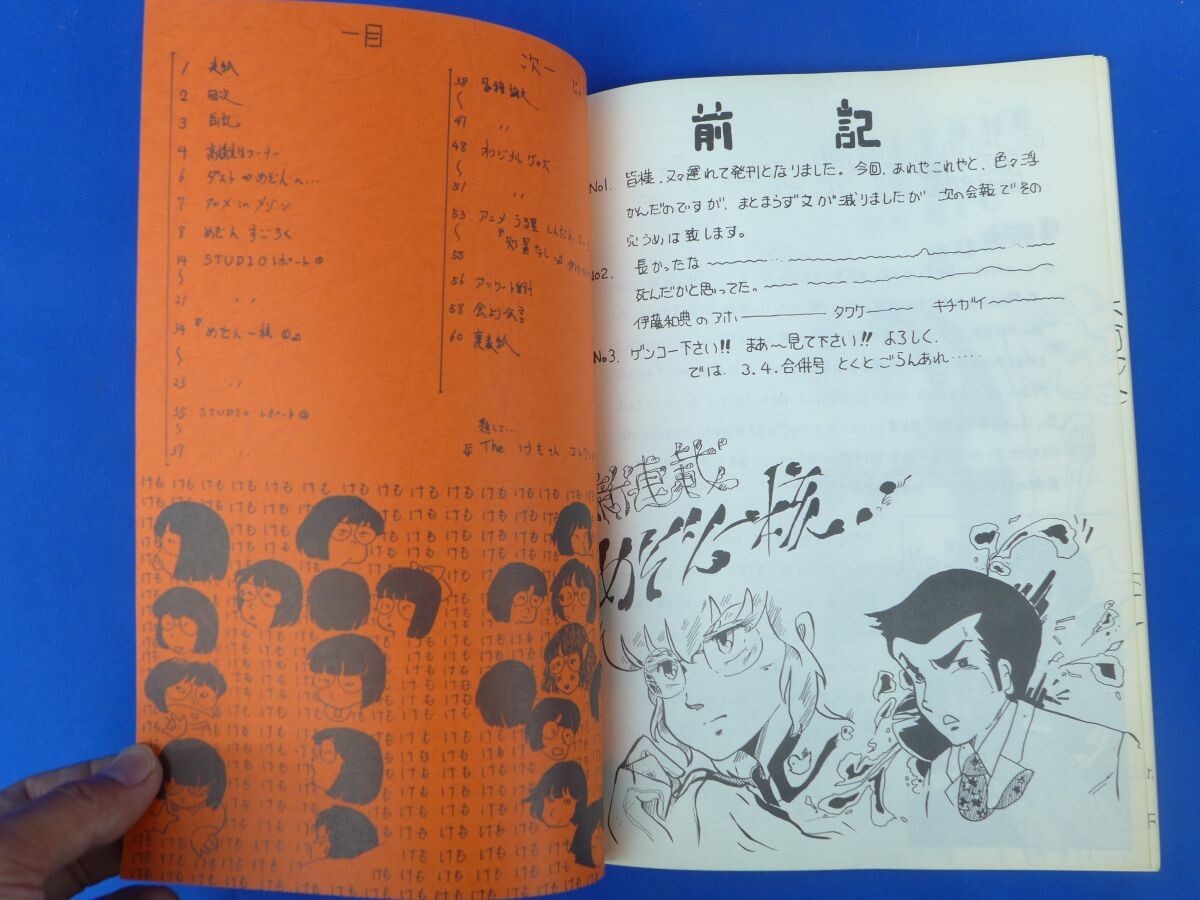 一目
次一
1 表紙
2 目次
3 前記
4 高橋コーナー
6 ダストのめぞんへ…
7 アニメ in メゾン
8 めぞん すごろく
14 STUDIO レポート①
〜
21 〃
34 『めぞん一様 の』
〜
23 〃
35 STUDIO レポート②
〜
37 〃
38 各種論文
〜
47 〃
48 オリジナル グッズ
〜
51 〃
53 アニメ うる星 しんだん
〜 『処置なし』
55
56 アンケート集計
58 会的伝言
60 裏表紙
題して…
The けもさん コレクション
けも けも けも けも けも けも けも けも けも けも
前 記
No1. 皆様、又々遅れて発刊となりました。今回、あれやこれやと、色々浮
かんだのですが、まとまらず文が減りましたが 次の会報でその
穴うめは致します。
No2. 長かったな〜
死んだかと思ってた。〜
伊藤和典のアホ― タワケ― キチガイ―
No3. ゲンコー下さい!! まあ〜見て下さい!! よろしく.
では 3.4.合併号 とくとごらんあれ.....
新連載
めぞん一様